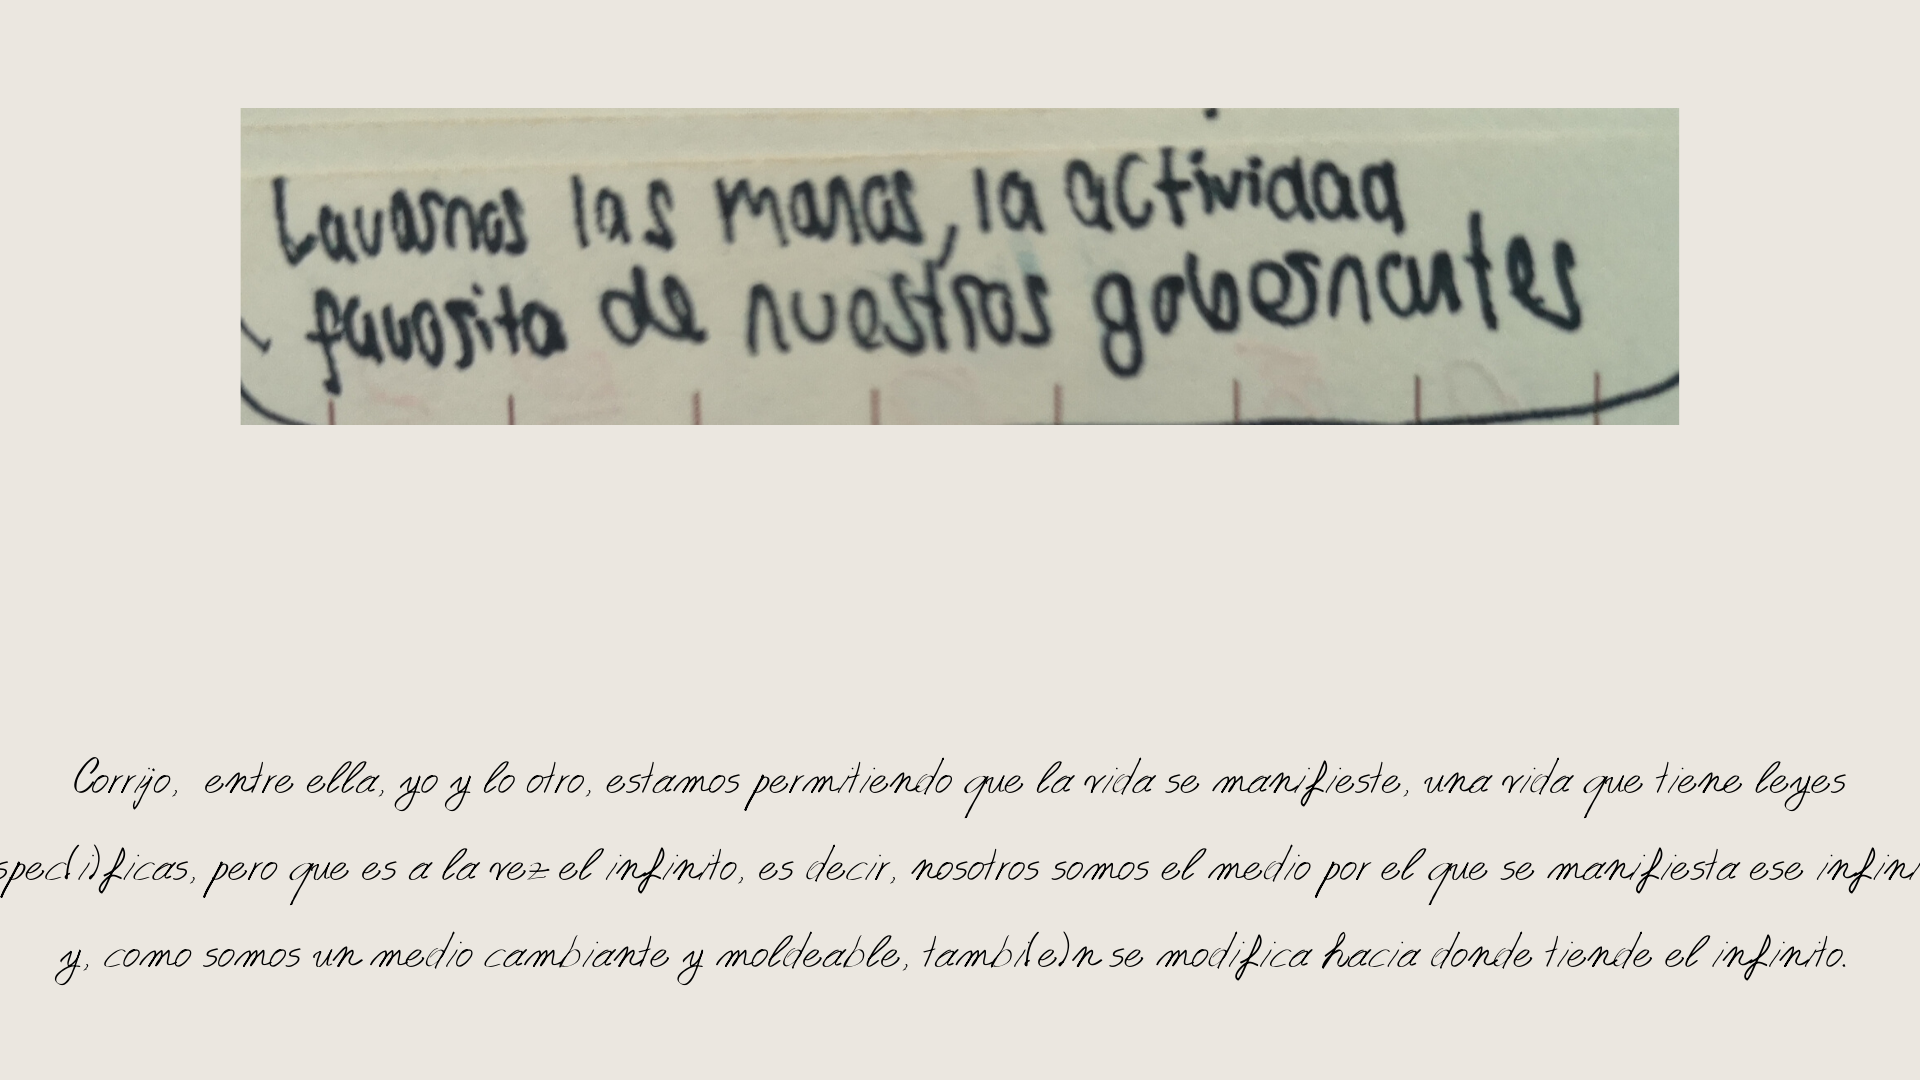 Lavarnos las manos, la actividad
favorita de nuestros gobernantes
Corrijo, entre ella, yo y lo otro, estamos permitiendo que la vida se manifieste, una vida que tiene leyes
spec(i)ficas, pero que es a la vez el infinito, es decir, nosotros somos el medio por el que se manifiesta ese infini
y, como somos un medio cambiante y moldeable, tambi(e)n se modifica hacia donde tiende el infinito.